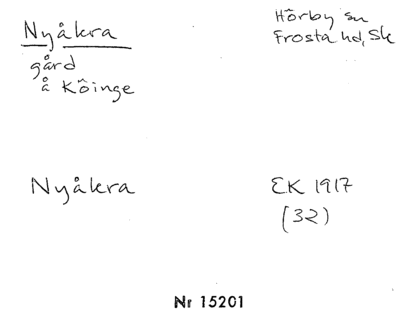 Nyåkra
gård
å Köinge
Hörby sn
Frosta hd, Sk
Nyåkra
EK 1917
(32)
Nr 15201